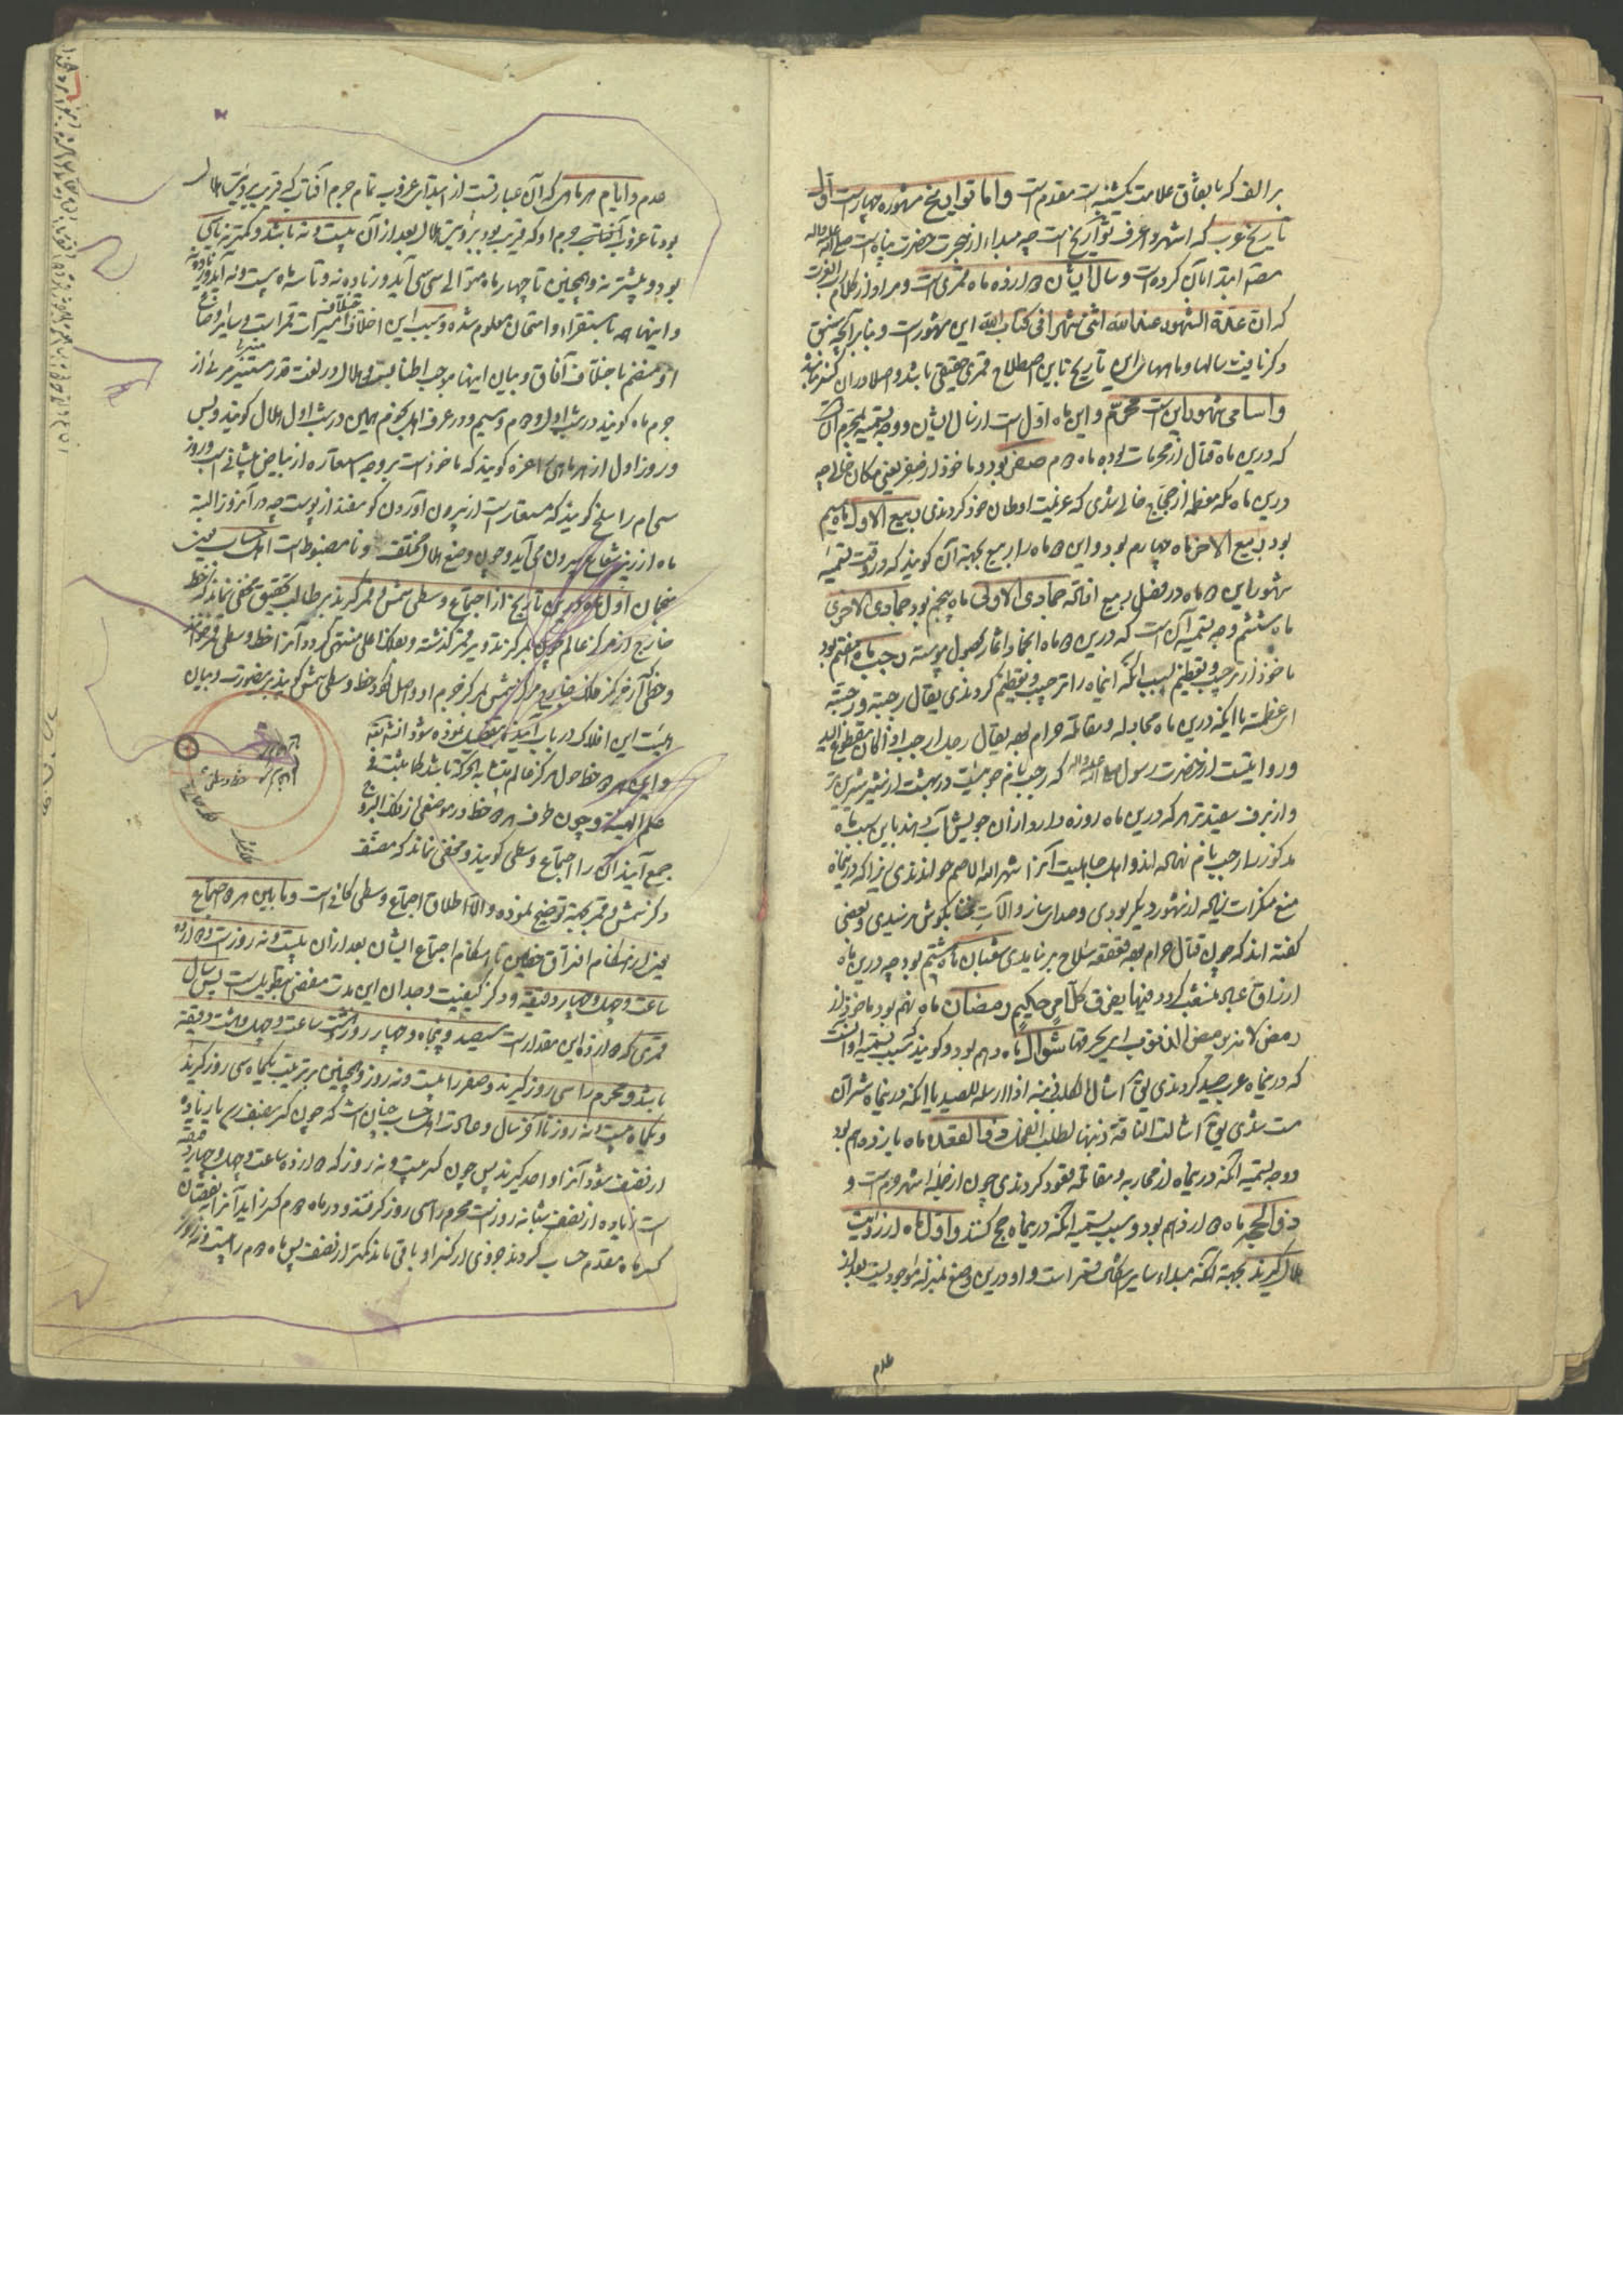 بر الف که باتفاق علامت یکشنبه است مقدم است واما تواریخ مشهوره چهار است اول
تاریخ عرب که اشهر و اعرف تواریخ است چه مبداء از هجرت حضرت
ابتدا بان کرده است و سال ایشان دوازده ماه قمری است و مراد از کلام
که ان عدة الشهور عند الله اثنی عشر شهرا فی کتاب الله این شهور است و بنابر آنچه سبق
ذکر یافت سالها و ماههای این تاریخ باین اصطلاح قمری حقیقی باشد و اصلا در آن کسر نباشد
واسامی شهور این است محرم و این ماه اول است از سال ایشان و وجه تسمیه بمحرم آن
که درین ماه قتال از محرمات بوده ماه دوم صفر بود و ماخوذ از صفر یعنی مکان خالی چه
درین ماه مکه معظمه از حجاج خالی شدی که عزیمت اوطان خود کردندی ربیع الاول ماه سیم
بود ربیع الاخر ماه چهارم بود و این دو ماه را ربیع بجهة آن گویند که در وقت تسمیه
شهور این دو ماه در فصل ربیع افتاده جمادی الاولی ماه پنجم بود جمادی الاخری
ماه ششم وجه تسمیه آن است که درین دو ماه انجماد انهار بحصول پیوسته رجب ماه هفتم بود
ماخوذ از ترجیب و تعظیم بسبب آنکه اینماه را ترجیب و تعظیم کردندی یقال رجبته و رجبته
ای عظمته یا آنکه درین ماه مجادله و مقاتله حرام بوده یقال رجل ارجب اذا کان مقطوع الید
و روایتست از حضرت رسول صلی الله علیه و آله که رجب نام جوییست در بهشت از شیر شیرین تر
و از برف سفیدتر هر که درین ماه روزه دارد از آن جویش آب دهند باین سبب ماه
مذکور را رجب نام نهاده اند و اهل جاهلیت آنرا شهر الله الاصم خواندندی زیرا که درینماه
منع منکرات زیاده از شهور دیگر بودی و صدای ساز و آلات بگوش نرسیدی و بعضی
گفته اند که چون قتال حرام بوده قعقعه سلاح برنیامدی شعبان ماه هشتم بود چه درین ماه
ارزاق عباد منشعب گردد فیها یفرق کل امر حکیم رمضان ماه نهم بود ماخوذ از
رمض لانه یرمض الذنوب ای یحرقها شوال ماه دهم بود و گویند سبب تسمیه او آنست
که درینماه عرب صید کردندی اشال الکلب اذا ارسله للصید یا آنکه درینماه شتران
مست شدی اشالت الناقة ذنبها لطلب الفحل ذی القعده ماه یازدهم بود
و وجه تسمیه آنکه درینماه از محاربه و مقاتله قعود کردندی چون از جمله اشهر حرم است و
ذی الحجه ماه دوازدهم بود و سبب تسمیه آنکه درینماه حج کنند و اول ماه از رؤیت
هلال گیرند بجهة آنکه مبداء سایر اشکال قمر است و او درین وضع بمنزله موجودیست بعد از
عدم
عدم و ایام هر ماهی که آن عبارتست از ابتدای غروب تمام جرم آفتاب که قریب برؤیت هلال
بود تا غروب جرم او که قریب بود برؤیت هلال بعد از آن بیست و نه باشد و کمتر نه یا سی
بود و بیشتر نه و همچنین تا چهار ماه متوالی سی سی آید و زیاده نه و تا سه ماه بیست و نه آید
و اینها همه باستقراء و امتحان معلوم شده و سبب این اختلاف مسیرات قمر است و سایر اوضاع
او منضم باختلاف آفاق و بیان اینها موجب اطنابست و هلال در لغت قدر مستنیر مرئی از
جرم ماه گویند در شب اول و دوم و سیم و در عرف اهل نجوم همین در شب اول هلال گویند و بس
و روز اول از هر ماهی را غره گویند که ماخوذ است بر وجه استعاره از بیاض پیشانی اسب و روز
سی ام را سلخ گویند که مستعار است از بیرون آوردن گوسفند از پوست چه در آنروز البته
ماه از زیر شعاع بیرون می آید و چون وضع هلال مختلف و نامضبوط است اهل حساب یعنی
منجمان اول ماه درین تاریخ از اجتماع وسطی شمس و قمر گیرند بر طالب تحقیق مخفی نماند که خط
خارج از مرکز عالم چون بمرکز تدویر قمر گذشته و بفلک اعلی منتهی گردد آنرا خط وسطی قمر خوانند
و خطی از مرکز فلک خارج مرکز شمس بمرکز جرم او واصل گردد خط وسطی شمس گویند بر صورت و بیان
هیئت این افلاک در باب آینده تفصیل نموده شود انشاءالله
و این هر دو خط حول مرکز عالم متشابه الحرکة باشد کما یثبت فی
علم الهیئة و چون طرف هر دو خط در موضعی از فلک البروج
جمع آیند آن را اجتماع وسطی گویند و مخفی نماند که مصنف
ذکر شمس و قمر بجهة توضیح نموده والا اطلاق اجتماع وسطی کافی است و مابین هر دو اجتماع
یعنی از هنگام افتراق خطین تا هنگام اجتماع ایشان بعد از آن بیست و نه روز است و دوازده
ساعت و چهل و چهار دقیقه و ذکر کیفیت وجدان این مدت مفضی بتطویل است پس سال
قمری که دوازده این مقدار است سیصد و پنجاه و چهار روز و هشت ساعت و چهل و هشت دقیقه
باشد و محرم را سی روز گیرند و صفر را بیست و نه روز و همچنین بر ترتیب یکماه سی روز گیرند
و یکماه بیست و نه روز تا آخر سال و عادت اهل حساب چنان است که چون کسر بنصف رسد یا زیاده
از نصف شود آنرا واحد گیرند پس چون کسر بیست و نه روز که دوازده ساعت و چهل و چهار دقیقه
است زیاده از نصف شبانه روز است محرم را سی روز گرفتند و در ماه دوم کسر زاید آنرا بنقصان
کسر ماه مقدم حساب کردند جزوی از کسر او باقی ماند کمتر از نصف پس ماه دوم را بیست و نه روز